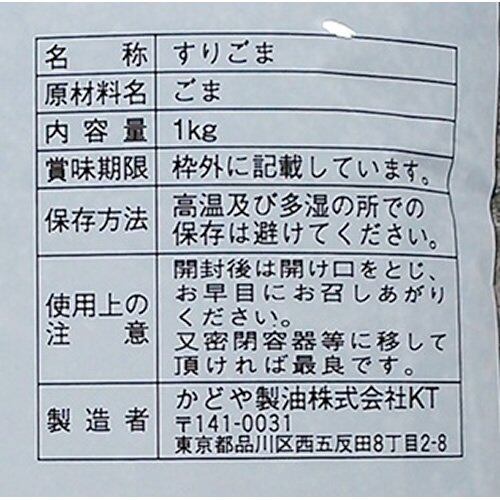 名称 すりごま
原材料名 ごま
内容量 1kg
賞味期限 枠外に記載しています。
保存方法 高温及び多湿の所での
保存は避けてください。
使用上の
注意 開封後は開け口をとじ、
お早目にお召しあがり
ください。
又密閉容器等に移して
頂ければ最良です。
製造者 かどや製油株式会社KT
〒141-0031
東京都品川区西五反田8丁目2-8